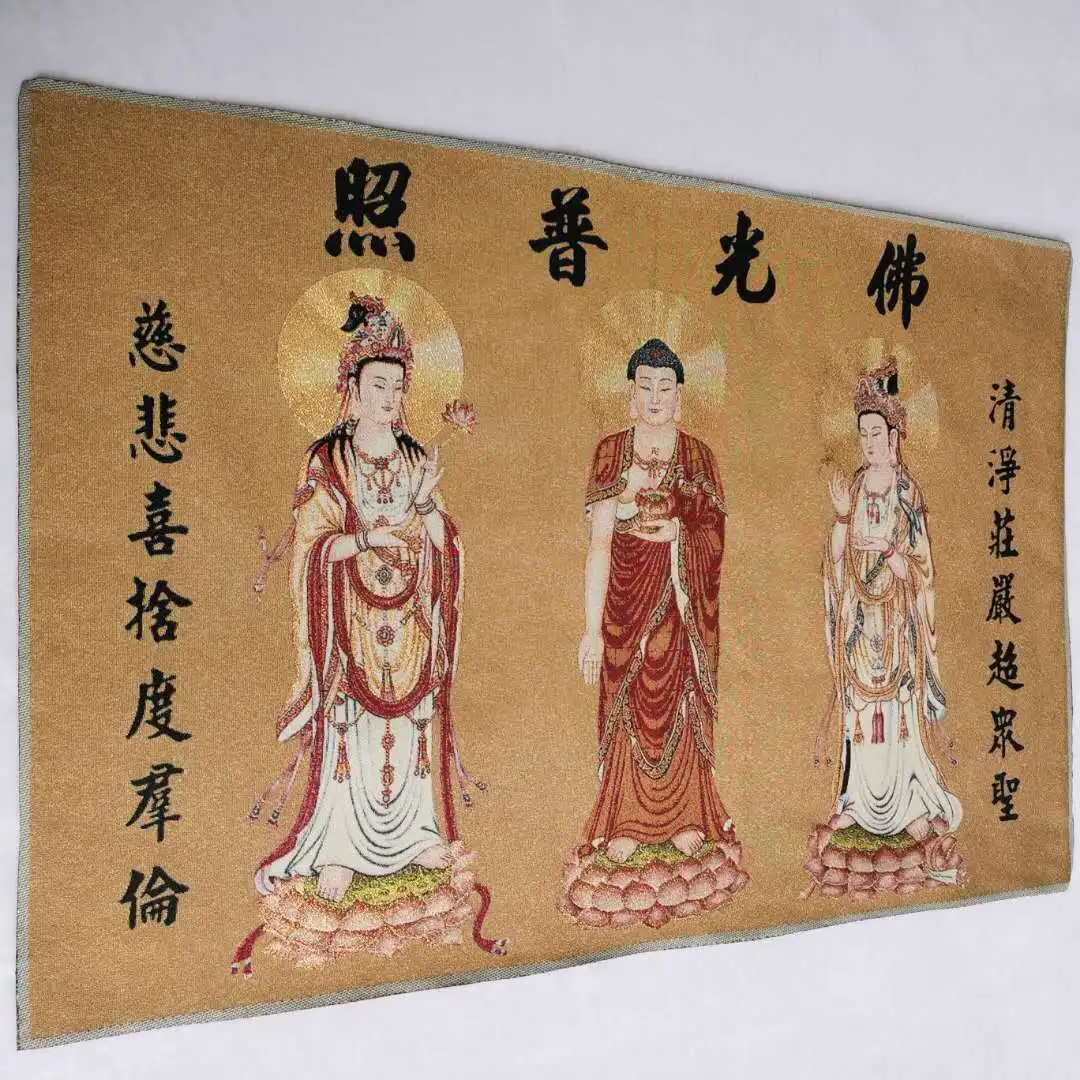 佛光普照
清淨莊嚴超眾聖
慈悲喜捨度羣倫